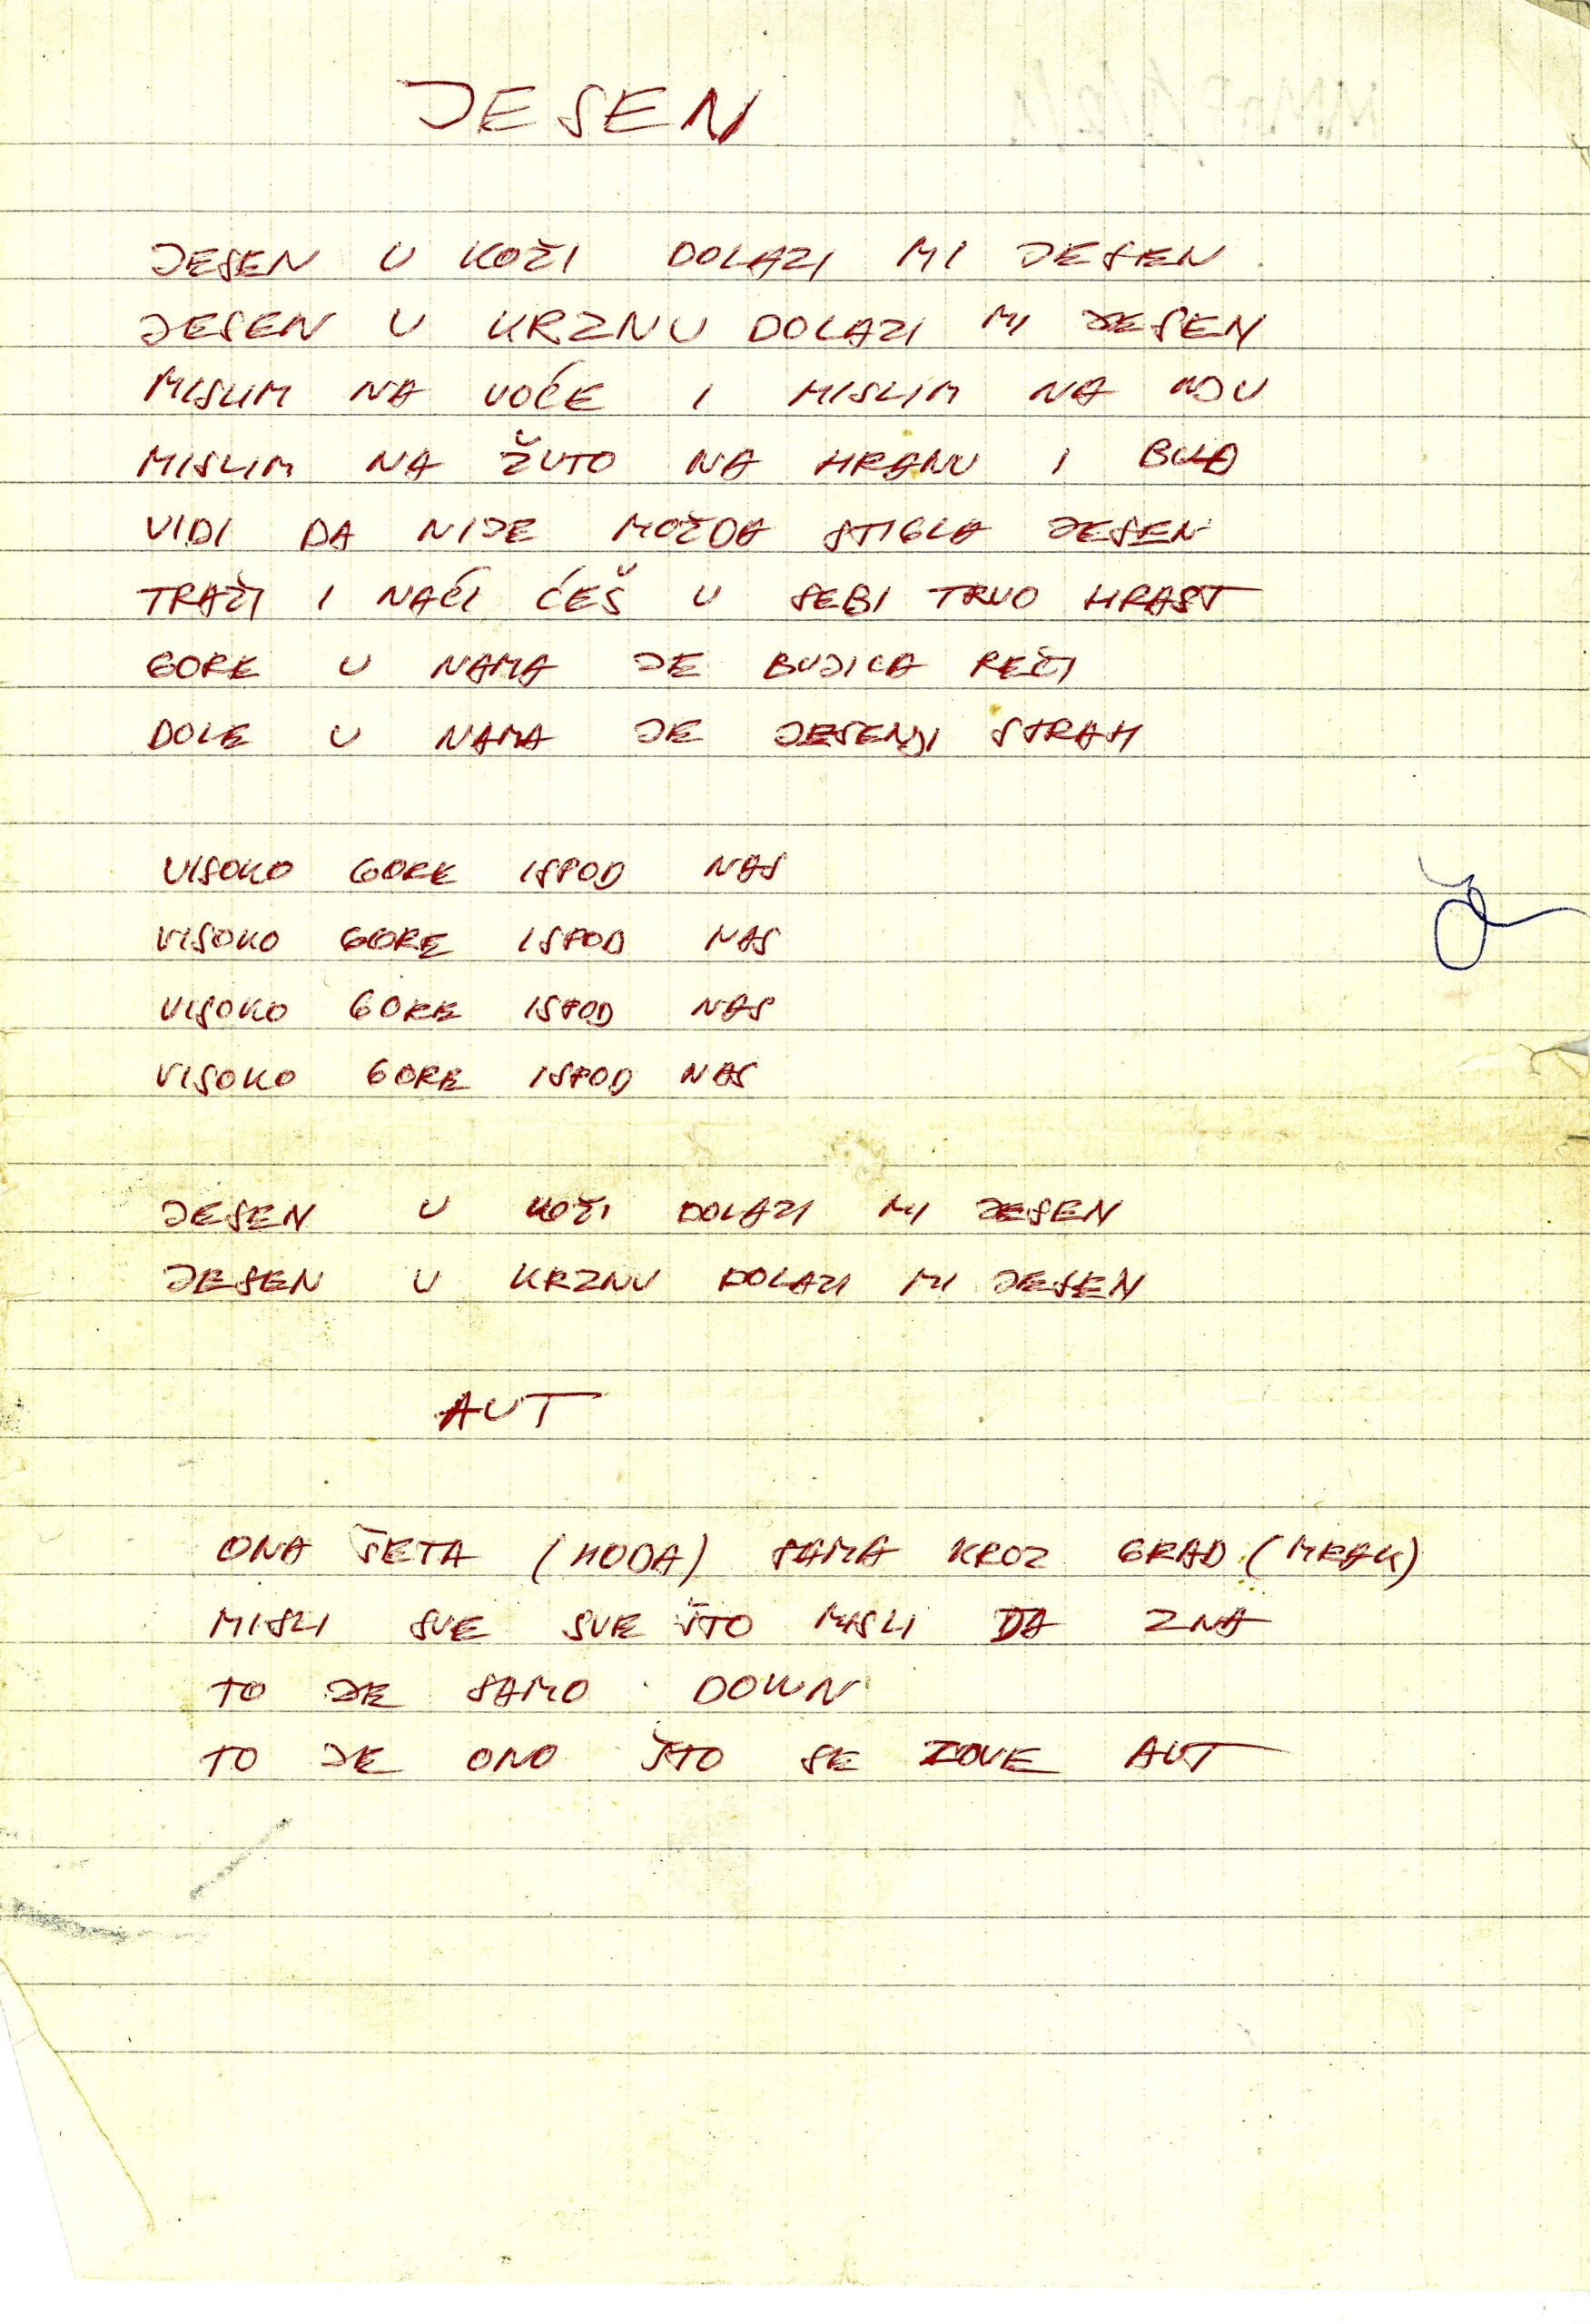 JESEN
JESEN U KOŽI DOLAZI MI JESEN
JESEN U KRZNU DOLAZI MI JESEN
MISLIM NA VOĆE I MISLIM NA NJU
MISLIM NA ŽUTO NA HRANU I
VIDI DA NIJE MOŽDA STIGLA JESEN
TRAŽI I NAĆI ĆEŠ U SEBI TRUO HRAST
GORE U NAMA JE BUJICA REČI
DOLE U NAMA JE JESENJI STRAH
VISOKO GORE ISPOD NAS
VISOKO GORE ISPOD NAS
VISOKO GORE ISPOD NAS
VISOKO GORE ISPOD NAS
JESEN U KOŽI DOLAZI MI JESEN
JESEN U KRZNU DOLAZI MI JESEN
AUT
ONA ŠETA (HODA) SAMA KROZ GRAD (MRAK)
MISLI SVE SVE ŠTO MISLI DA ZNA
TO JE SAMO DOWN
TO JE ONO ŠTO SE ZOVE AUT